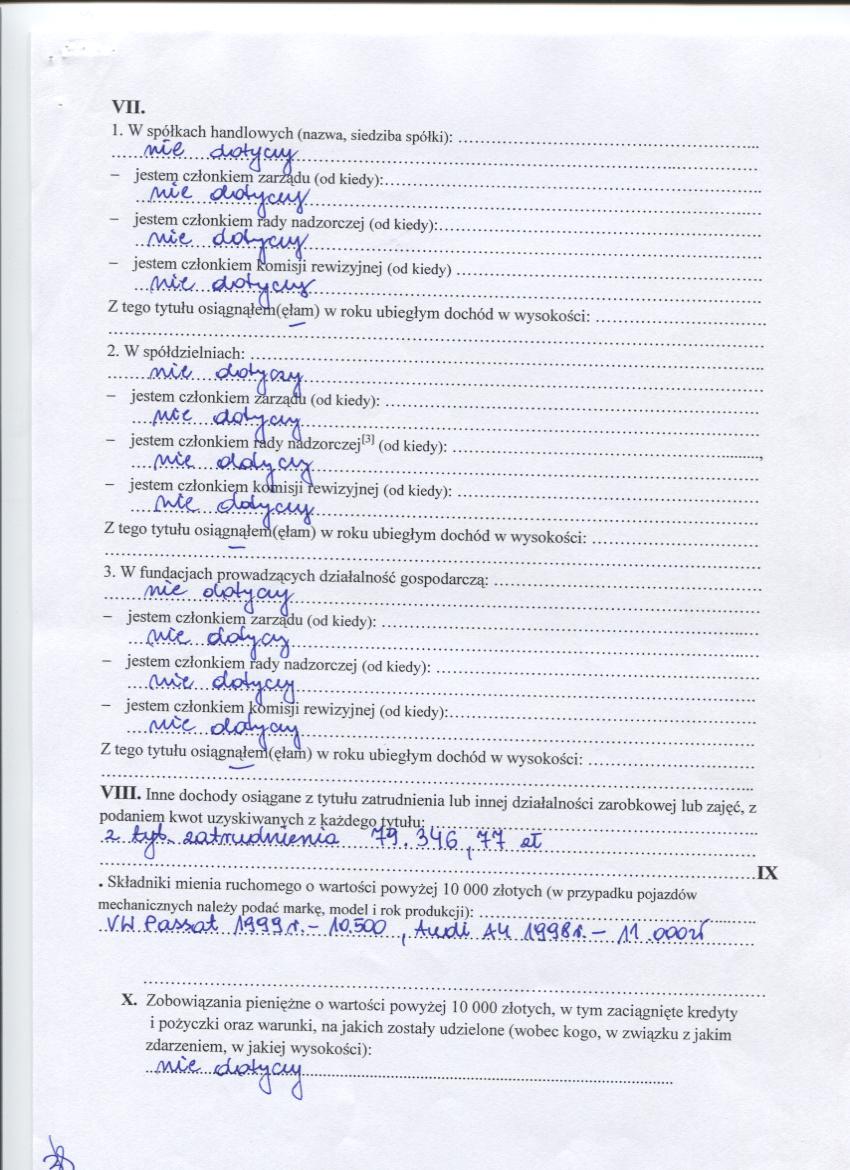 VII.
1. W spółkach handlowych (nazwa, siedziba spółki):
nie dotyczy
– jestem członkiem zarządu (od kiedy):
nie dotyczy
– jestem członkiem rady nadzorczej (od kiedy):
nie dotyczy
– jestem członkiem komisji rewizyjnej (od kiedy)
nie dotyczy
Z tego tytułu osiągnąłem(ęłam) w roku ubiegłym dochód w wysokości:
2. W spółdzielniach:
nie dotyczy
– jestem członkiem zarządu (od kiedy):
nie dotyczy
– jestem członkiem rady nadzorczej[3] (od kiedy):
nie dotyczy
– jestem członkiem komisji rewizyjnej (od kiedy):
nie dotyczy
Z tego tytułu osiągnąłem(ęłam) w roku ubiegłym dochód w wysokości:
3. W fundacjach prowadzących działalność gospodarczą:
nie dotyczy
– jestem członkiem zarządu (od kiedy):
nie dotyczy
– jestem członkiem rady nadzorczej (od kiedy):
nie dotyczy
– jestem członkiem komisji rewizyjnej (od kiedy):
nie dotyczy
Z tego tytułu osiągnąłem(ęłam) w roku ubiegłym dochód w wysokości:
VIII. Inne dochody osiągane z tytułu zatrudnienia lub innej działalności zarobkowej lub zajęć, z
podaniem kwot uzyskiwanych z każdego tytułu:
z tyt. zatrudnienia 79.346,77 zł
IX
. Składniki mienia ruchomego o wartości powyżej 10 000 złotych (w przypadku pojazdów
mechanicznych należy podać markę, model i rok produkcji):
VW Passat 1999 r. – 10.500, Audi A4 1998 r. – 11.000 zł
X. Zobowiązania pieniężne o wartości powyżej 10 000 złotych, w tym zaciągnięte kredyty
i pożyczki oraz warunki, na jakich zostały udzielone (wobec kogo, w związku z jakim
zdarzeniem, w jakiej wysokości):
nie dotyczy